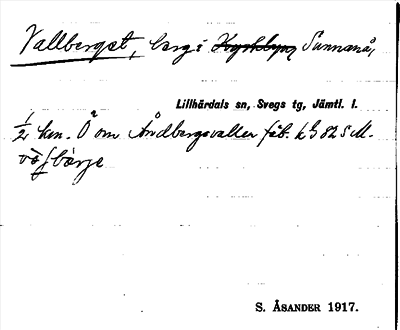 Vallberget, berg i Kyrkbyn, Sunnanå,
Lillhärdals sn, Svegs tg, Jämtl. l.
1/2 km. O om Åndbergsvallen fäb. 82 S M.
S. ÅSANDER 1917.